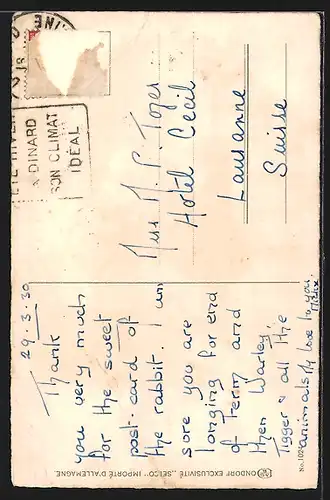 ÉTÉ HIVER
DINARD
SON CLIMAT
IDÉAL
Miss
Hotel Cecil
Lausanne
Suisse
29.3.30
Thank
you very much
for the sweet
post-card of
the rabbit. I am
sure you are
longing for end
of Term and
then Warley.
Tigger & all the
animals my love to you
EXCLUSIVITÉ „SEECO" IMPORTÉ D'ALLEMAGNE